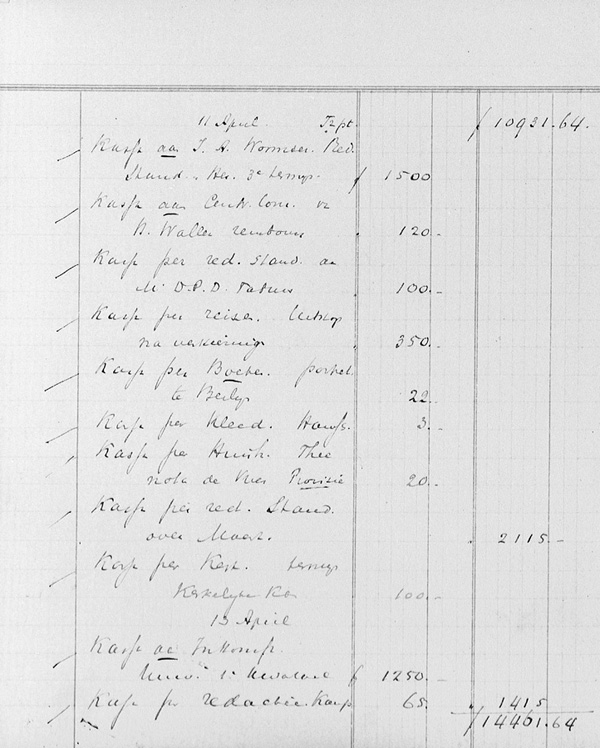 11 April. Trpt. ƒ 10931.64.
Kassa aan J. A. Wormser. Red.
Stand. Her. 3e termijn. ƒ 1500
Kassa aan Centr. Com. 
W. Waller 120.-
Kassa per red. Stand. aan
Mr D.P.D. Fabius 100.-
Kassa per reizen.
na verkiezing 350.-
Kassa per Boeken. portret
te Berlijn 22.-
Kassa per kleed. 3.-
Kassa per Huish. Thee
nota de Vries Provisie 20.-
Kassa per red. Stand.
over Maart. 2115.-
Kassa per Kerk. termijn
Kerkelijke Kas 100.-
13 April
Kassa aan Inkomst.
Univ. ƒ 1250.-
Kassa per redactie. 65. 1415
ƒ 14461.64